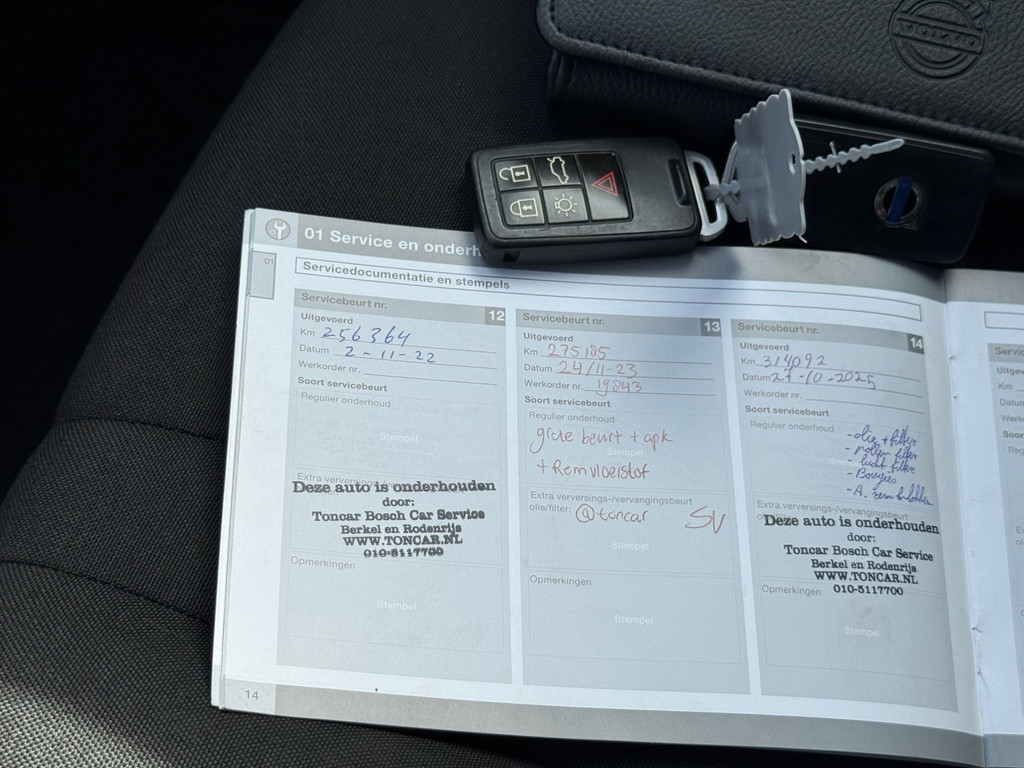 VOLVO
01 Service en onderh
01
Servicedocumentatie en stempels
Servicebeurt nr. 12
Uitgevoerd
Km 256364
Datum 2-11-22
Werkorder nr.
Soort servicebeurt
Regulier onderhoud
Stempel
Extra verversings-/vervangingsbeurt
Deze auto is onderhouden
door:
Toncar Bosch Car Service
Berkel en Rodenrijs
WWW.TONCAR.NL
010-5117700
Opmerkingen
Stempel
14
Servicebeurt nr. 13
Uitgevoerd
Km 275185
Datum 24/11-23
Werkorder nr. 19843
Soort servicebeurt
Regulier onderhoud
grote beurt + apk
Stempel
+ Remvloeistof
Extra verversings-/vervangingsbeurt
olie/filter: @toncar SV
Stempel
Opmerkingen
Stempel
Servicebeurt nr. 14
Uitgevoerd
Km 314092
Datum 27-10-2025
Werkorder nr.
Soort servicebeurt
Regulier onderhoud
- olie + filter
- pollen filter
- lucht filter
- Bougies
- A. remblokken
Extra verversings-/vervangingsbeurt
Deze auto is onderhouden
door:
Toncar Bosch Car Service
Berkel en Rodenrijs
WWW.TONCAR.NL
Opmerkingen 010-5117700
Stempel
Service
Uitgevo
Km
Datum
Werko
Soor
Reg